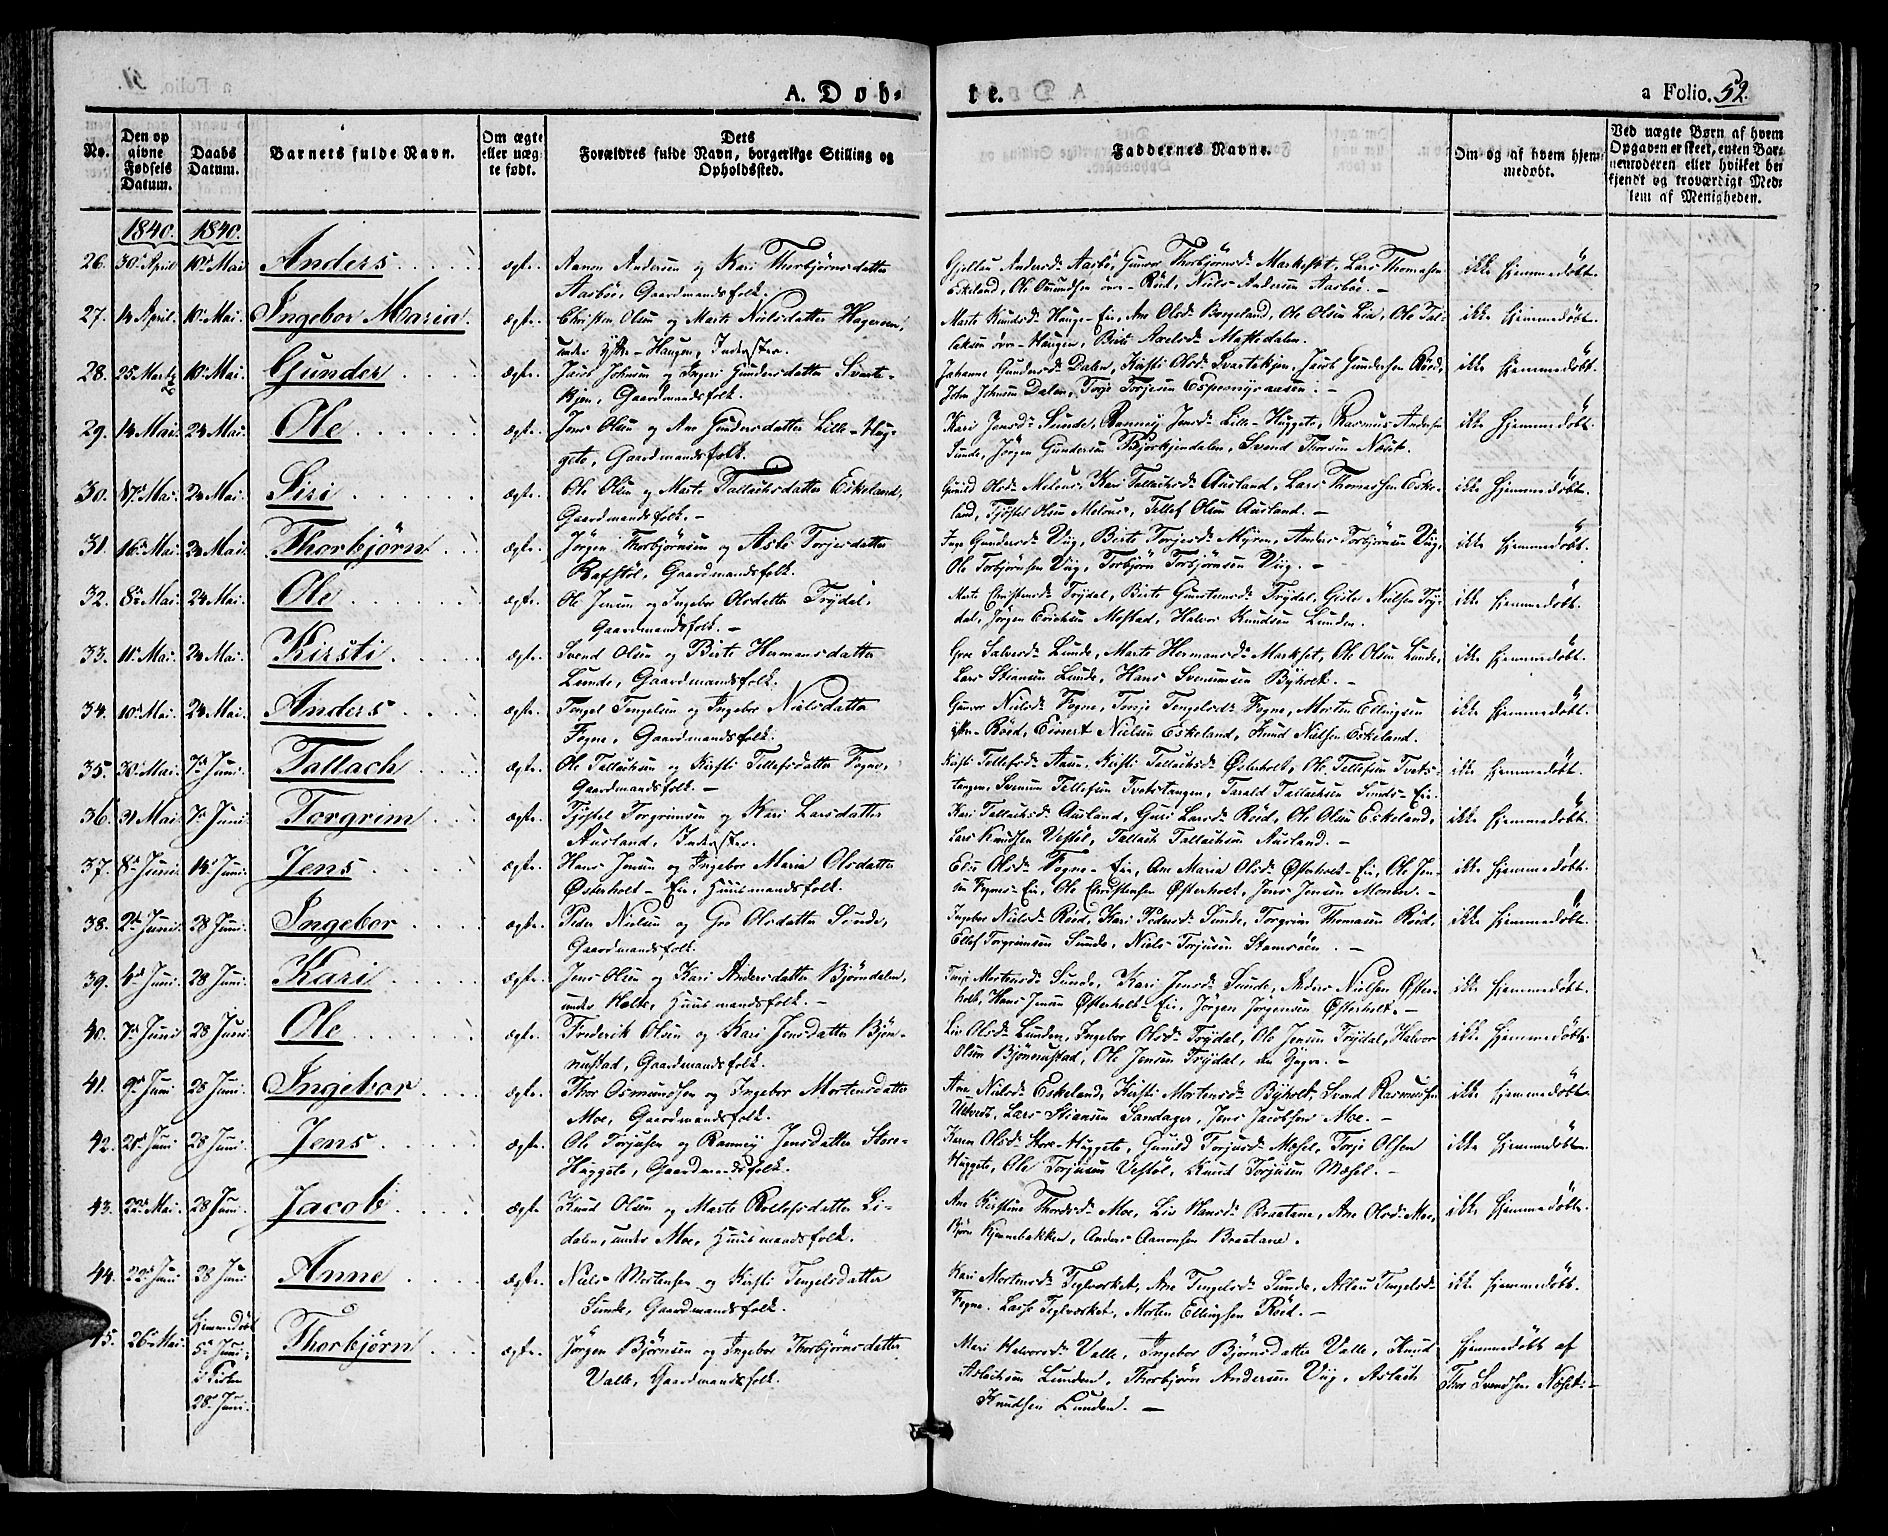 A. Døb-
te.
a Folio. 52.
No.
Den op
givne
Fødsels
Datum.
Daabs
Datum.
Barnets fulde Navn.
Om ægte
eller uæg
te født.
Dets
Forældres fulde Navn, borgerlige Stilling og
Opholdssted.
Faddernes Navne.
Om og af hvem hjem
medøbt.
Ved uægte Børn af hvem
Opgaven er skeet, enten Bar
nemoderen eller hvilket be
kjendt og troværdigt Med
lem af Menigheden.
1840. 1840.
26. 30te April 10de Mai Anders ægte. Aanon Andersen og Kari Thorbjørnsdatter
Aasbøe, Gaardmandsfolk.
Anders d. Aasbø, Gunvor Thorbjørnsd. Markset, Lars Thomasen
Eskeland, Ole Omundsen øvre-Röed, Niels Andersen Aasbøe.
ikke hjemmedøbt.
27. 14 April. 10de Mai. Ingebor Maria. ægte. Christen Olsen og Marte Nielsdatter
under ystre-Haugen, Inderster.
Marte Knudsd. Hauge-Eie, Ane Olsd. Borgeland, Ole Olsen Lia, Ole Tal-
laksen øvre-Haugen, Birte Axelsd.
ikke hjemmedøbt.
28. 25 Marts 10de Mai. Gunder ægte. Jens Johnsen og Ingeri Gundersdatter Svarte-
kjøn, Gaardmandsfolk.
Johanne Gundersd. Dalen, Kirsti Olsd. Svartekjøn, Jacob Gundersen Röed,
John Johnsen Dalen, Torje Torjesen Espesmyraasen.
ikke hjemmedøbt.
29. 14 Mai. 24 Mai. Ole ægte. Jens Olsen og Ane Gundersdatter Lille-Hug-
gete, Gaardmandsfolk.
Kari Jensd. Sunde, Ranney Jensd. Lille-Huggete, Rasmus Andersen
Sunde, Jørgen Gundersen Svend Thorsen Næset.
ikke hjemmedøbt.
30. 17de Mai. 24 Mai. Siri ægte. Ole Olsen og Marte Tallachsdatter Eskeland,
Gaardmandsfolk.
Gunild Olsd. Kari Tallachsd. Ausland, Lars Thomassen Eske-
land, Tjøstel Olsen Tellef Olsen Ausland.
ikke hjemmedøbt.
31. 16de Mai. 24 Mai. Thorbjørn ægte. Jørgen Thorbjørnsen og Torjesdatter
Gaardmandsfolk.
Gundersd. Viig, Berte Torjesd. Myren, Anders Torbjørnsen Viig,
Ole Torbjørnsen Viig, Torbjørn Torbjørnsen Viig.
ikke hjemmedøbt.
32. 8de Mai. 24 Mai. Ole ægte. Ole Jensen og Ingebor Olsdatter Trydal,
Gaardmandsfolk.
Marte Christensd. Trydal, Berte Trydal, Nielsen Try-
dal, Jørgen Ericksen Mostad, Halvor Knudsen Lunden.
ikke hjemmedøbt.
33. 11te Mai. 24 Mai. Kirsti ægte. Svend Olsen og Birte Hermansdatter
Lunde, Gaardmandsfolk.
Groe Salvesd. Lunde, Marte Hermansd. Markset, Ole Olsen Lunde,
Lars Stiansen Lunde, Hans Svenumsen Byholt.
ikke hjemmedøbt.
34. 10de Mai. 24 Mai. Anders ægte. Tengel Tengelsen og Ingebor Nielsdatter
Fogne, Gaardmandsfolk.
Gunvor Nielsd. Fogne, Tengelsd. Fogne, Morten Ellingsen
Röed, Nielsen Eskeland, Knud Nielsen Eskeland.
ikke hjemmedøbt.
35. 30te Mai. 7de Juni. Tallach ægte. Ole Tallachsen og Kirsti Tellefsdatter Fogne,
Gaardmandsfolk.
Kirsti Tellefsd. Aasen, Kirsti Tallachsd. Østerholt, Ole Tellefsen Tveks-
tangen, Svenum Tellefsen Tvekstangen, Tarald Tallachsen Sunds-Eie.
ikke hjemmedøbt.
36. 31 Mai 7de Juni Torgrim ægte. Tjøstel Torgrimsen og Kari Larsdatter
Ausland, Inderster.
Kari Tallachsd. Ausland, Guri Larsd. Röed, Ole Olsen Eskeland,
Lars Knudsen Vestøl, Tallach Tallachsen Ausland.
ikke hjemmedøbt.
37. 8de Juni. 14de Juni. Jens ægte. Hans Jensen og Ingebor Maria Olsdatter
Østerholt-Eie, Huusmandsfolk.
Else Olsd. Fogne-Eie, Ane Maria Olsd. Østerholt-Eie, Ole Jen-
sen Fognes-Eie, Ole Christensen Østerholt, Jens Jensen Monen.
ikke hjemmedøbt.
38. 2den Juni. 28 Juni. Ingebor ægte. Peder Nielsen og Gro Olsdatter Sunde,
Gaardmandsfolk.
Ingebor Nielsd. Röed, Kari Pedersd. Sunde, Torgrim Thomasen Röed,
Ellef Torgrimsen Sunde, Niels Torjusen Stamsøen.
ikke hjemmedøbt.
39. 4de Juni. 28 Juni. Kari ægte. Jens Olsen og Kari Andersdatter Bjørndalen,
under Holte, Huusmandsfolk.
Mortensd. Sunde, Kari Jensd. Sunde, Anders Nielsen Øster-
holt, Hans Jensen Østerholt-Eie, Jørgen Jørgensen Østerholt.
ikke hjemmedøbt.
40. 7de Juni 28 Juni. Ole ægte. Frederik Olsen og Kari Jensdatter Bjøn-
nustad, Gaardmandsfolk.
Liv Olsd. Lunden, Ingebor Olsd. Trydal, Ole Jensen Trydal, Halvor
Olsen Bjønnustad, Ole Jensen Trydal, den Yngre.
ikke hjemmedøbt.
41. 9de Juni 28 Juni. Ingebor ægte. Thor Osmundsen og Ingebor Mortensdatter
Moe, Gaardmandsfolk.
Ane Nielsd. Eskeland, Kirsti Mortensd. Byholt, Svend Rasmussen
Lars Stiansen Sandager, Jens Jacobsen Moe.
ikke hjemmedøbt.
42. 20de Juni 28 Juni. Jens ægte. Ole Torjusen og Ranney Jensdatter Store-
Huggete, Gaardmandsfolk.
Karen Olsd. Store-Huggete, Gunild Torjusd. Mæsel, Torje Olsen
Huggete, Ole Torjusen Vestøl, Knud Torjusen Mæsel.
ikke hjemmedøbt.
43. 22de Mai. 28 Juni. Jacob ægte. Knud Olsen og Marte Rollefsdatter Li-
dalen, under Moe, Huusmandsfolk.
Ane Kirstine Thordsd. Moe, Liv Hansd. Braatane, Ane Olsd. Moe,
Bjørn Kjennebakken, Anders Aanonsen Braatane.
ikke hjemmedøbt.
44. 22de Juni 28 Juni Anne ægte. Niels Mortensen og Kirsti Tengelsdatter
Sunde, Gaardmandsfolk.
Kari Mortensd. Teglverket, Ane Tengelsd. Sunde, Aslau Tengelsd.
Fogne. Lasse Teglverket, Morten Ellingsen Röed.
ikke hjemmedøbt.
45. 26de Mai. Hjemmedøbt
5te Juni;
i Kirken
28de Juni. Thorbjørn ægte. Jørgen Bjørnsen og Ingebor Thorbjørnsdatter
Valle, Gaardmandsfolk.
Mari Halvorsd. Valle, Ingebor Bjørnsdatter Valle, Knud
Aslachsen Lunden, Thorbjørn Andersen Viig, Aslach
Knudsen Lunden.
Hjemmedøbt af
Thor Svendsen Næset.